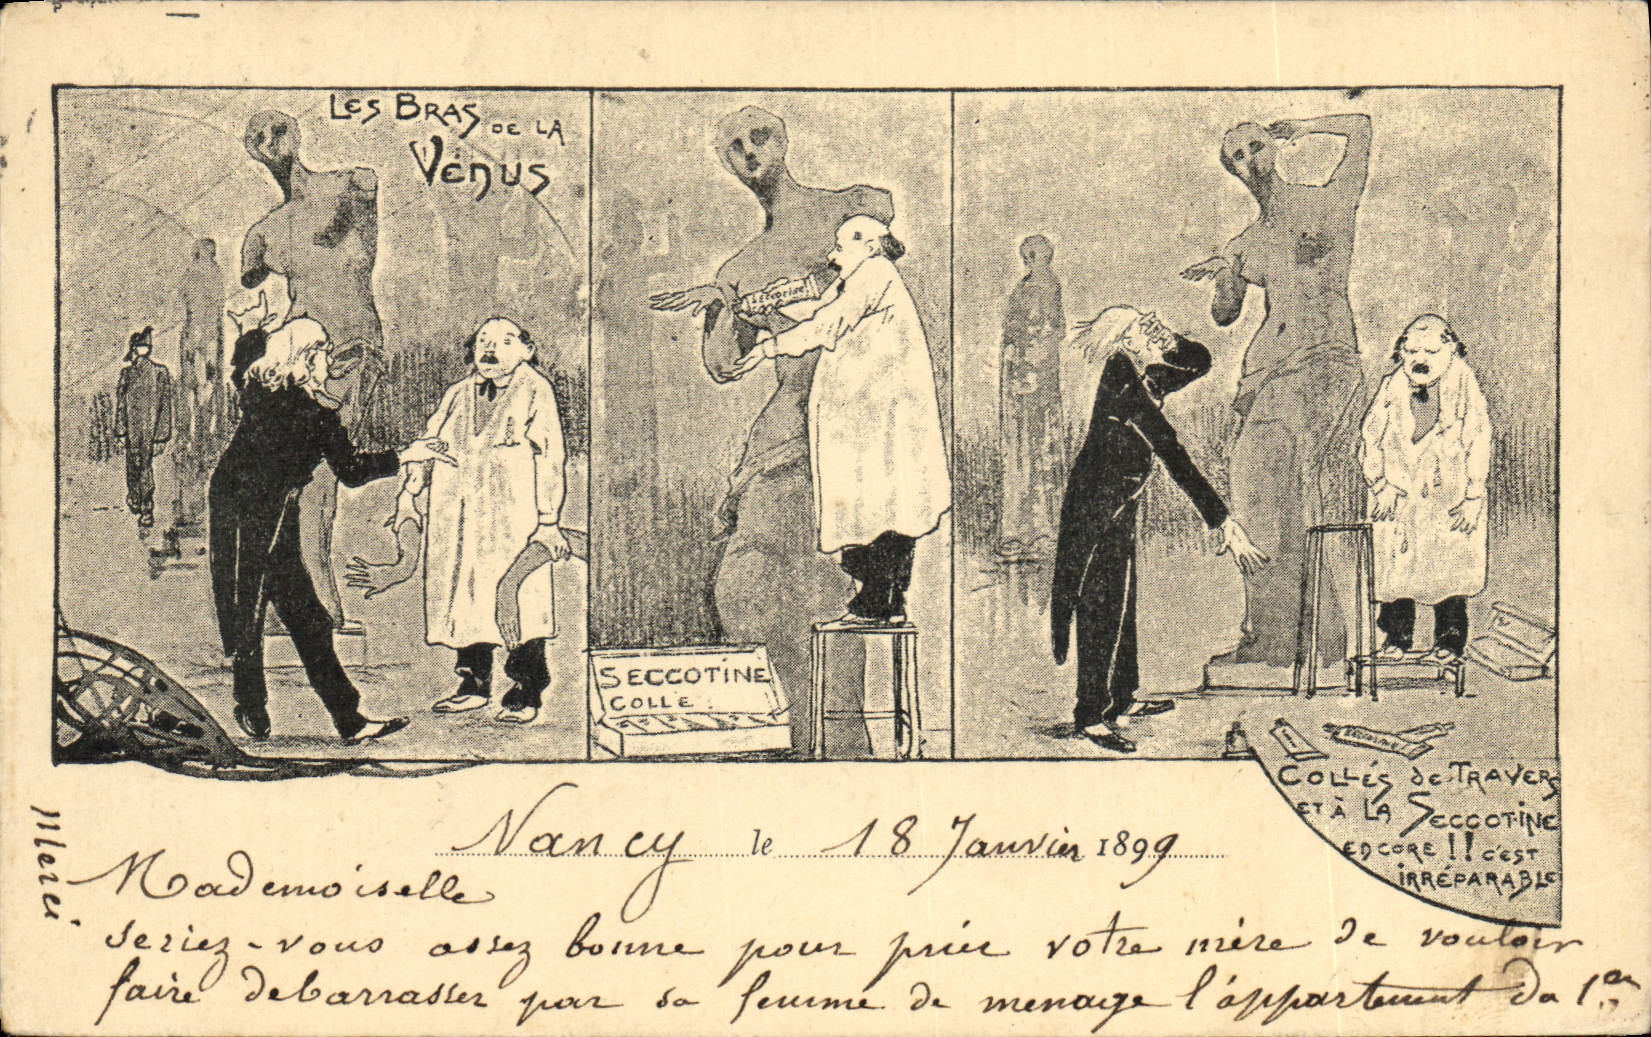 LES BRAS
DE LA
VÉNUS
SECCOTINE
SECCOTINE
COLLE
SECCOTINE
COLLÉS DE TRAVERS
ET À LA SECCOTINE
ENCORE !! C'EST
IRRÉPARABLE
Nancy le 18 Janvier 1899
Mademoiselle
seriez-vous assez bonne pour prier votre mère de vouloir
faire debarrasser par sa femme de menage l'appartement du 1er
Merci